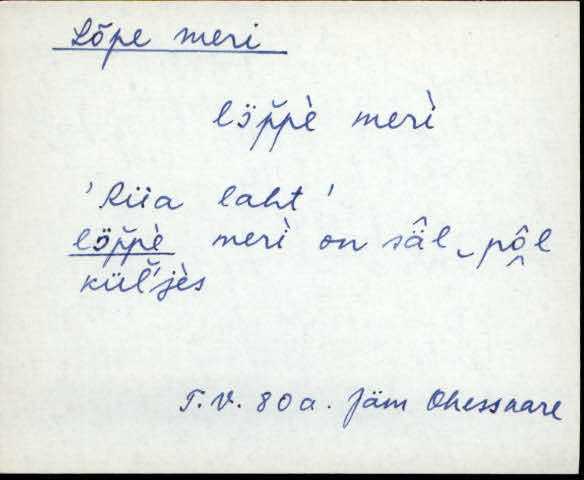 Lõpe meri
lɔ̈p̌pè merì
'Riia laht'
lɔ̈p̌pè merì on säl pô̭l
kül̆'jès
T.V. 80 a. Jäm Ohessaare